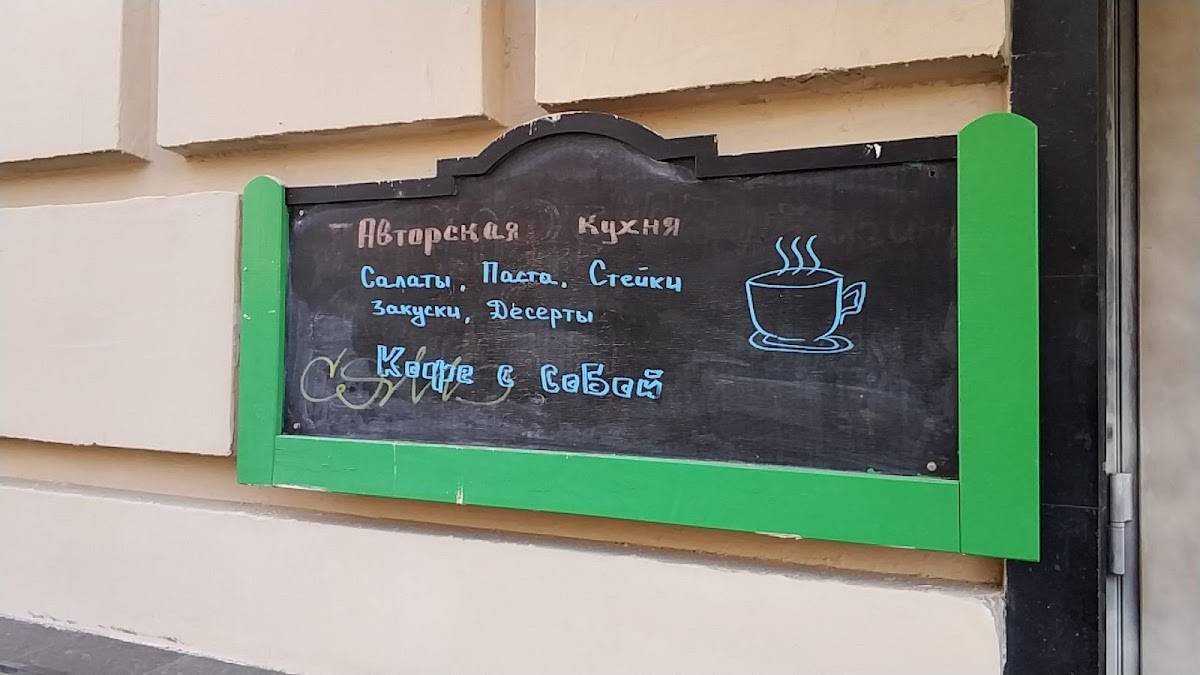 Авторская кухня
Салаты, Паста, Стейки
Закуски, Десерты
Кофе с собой